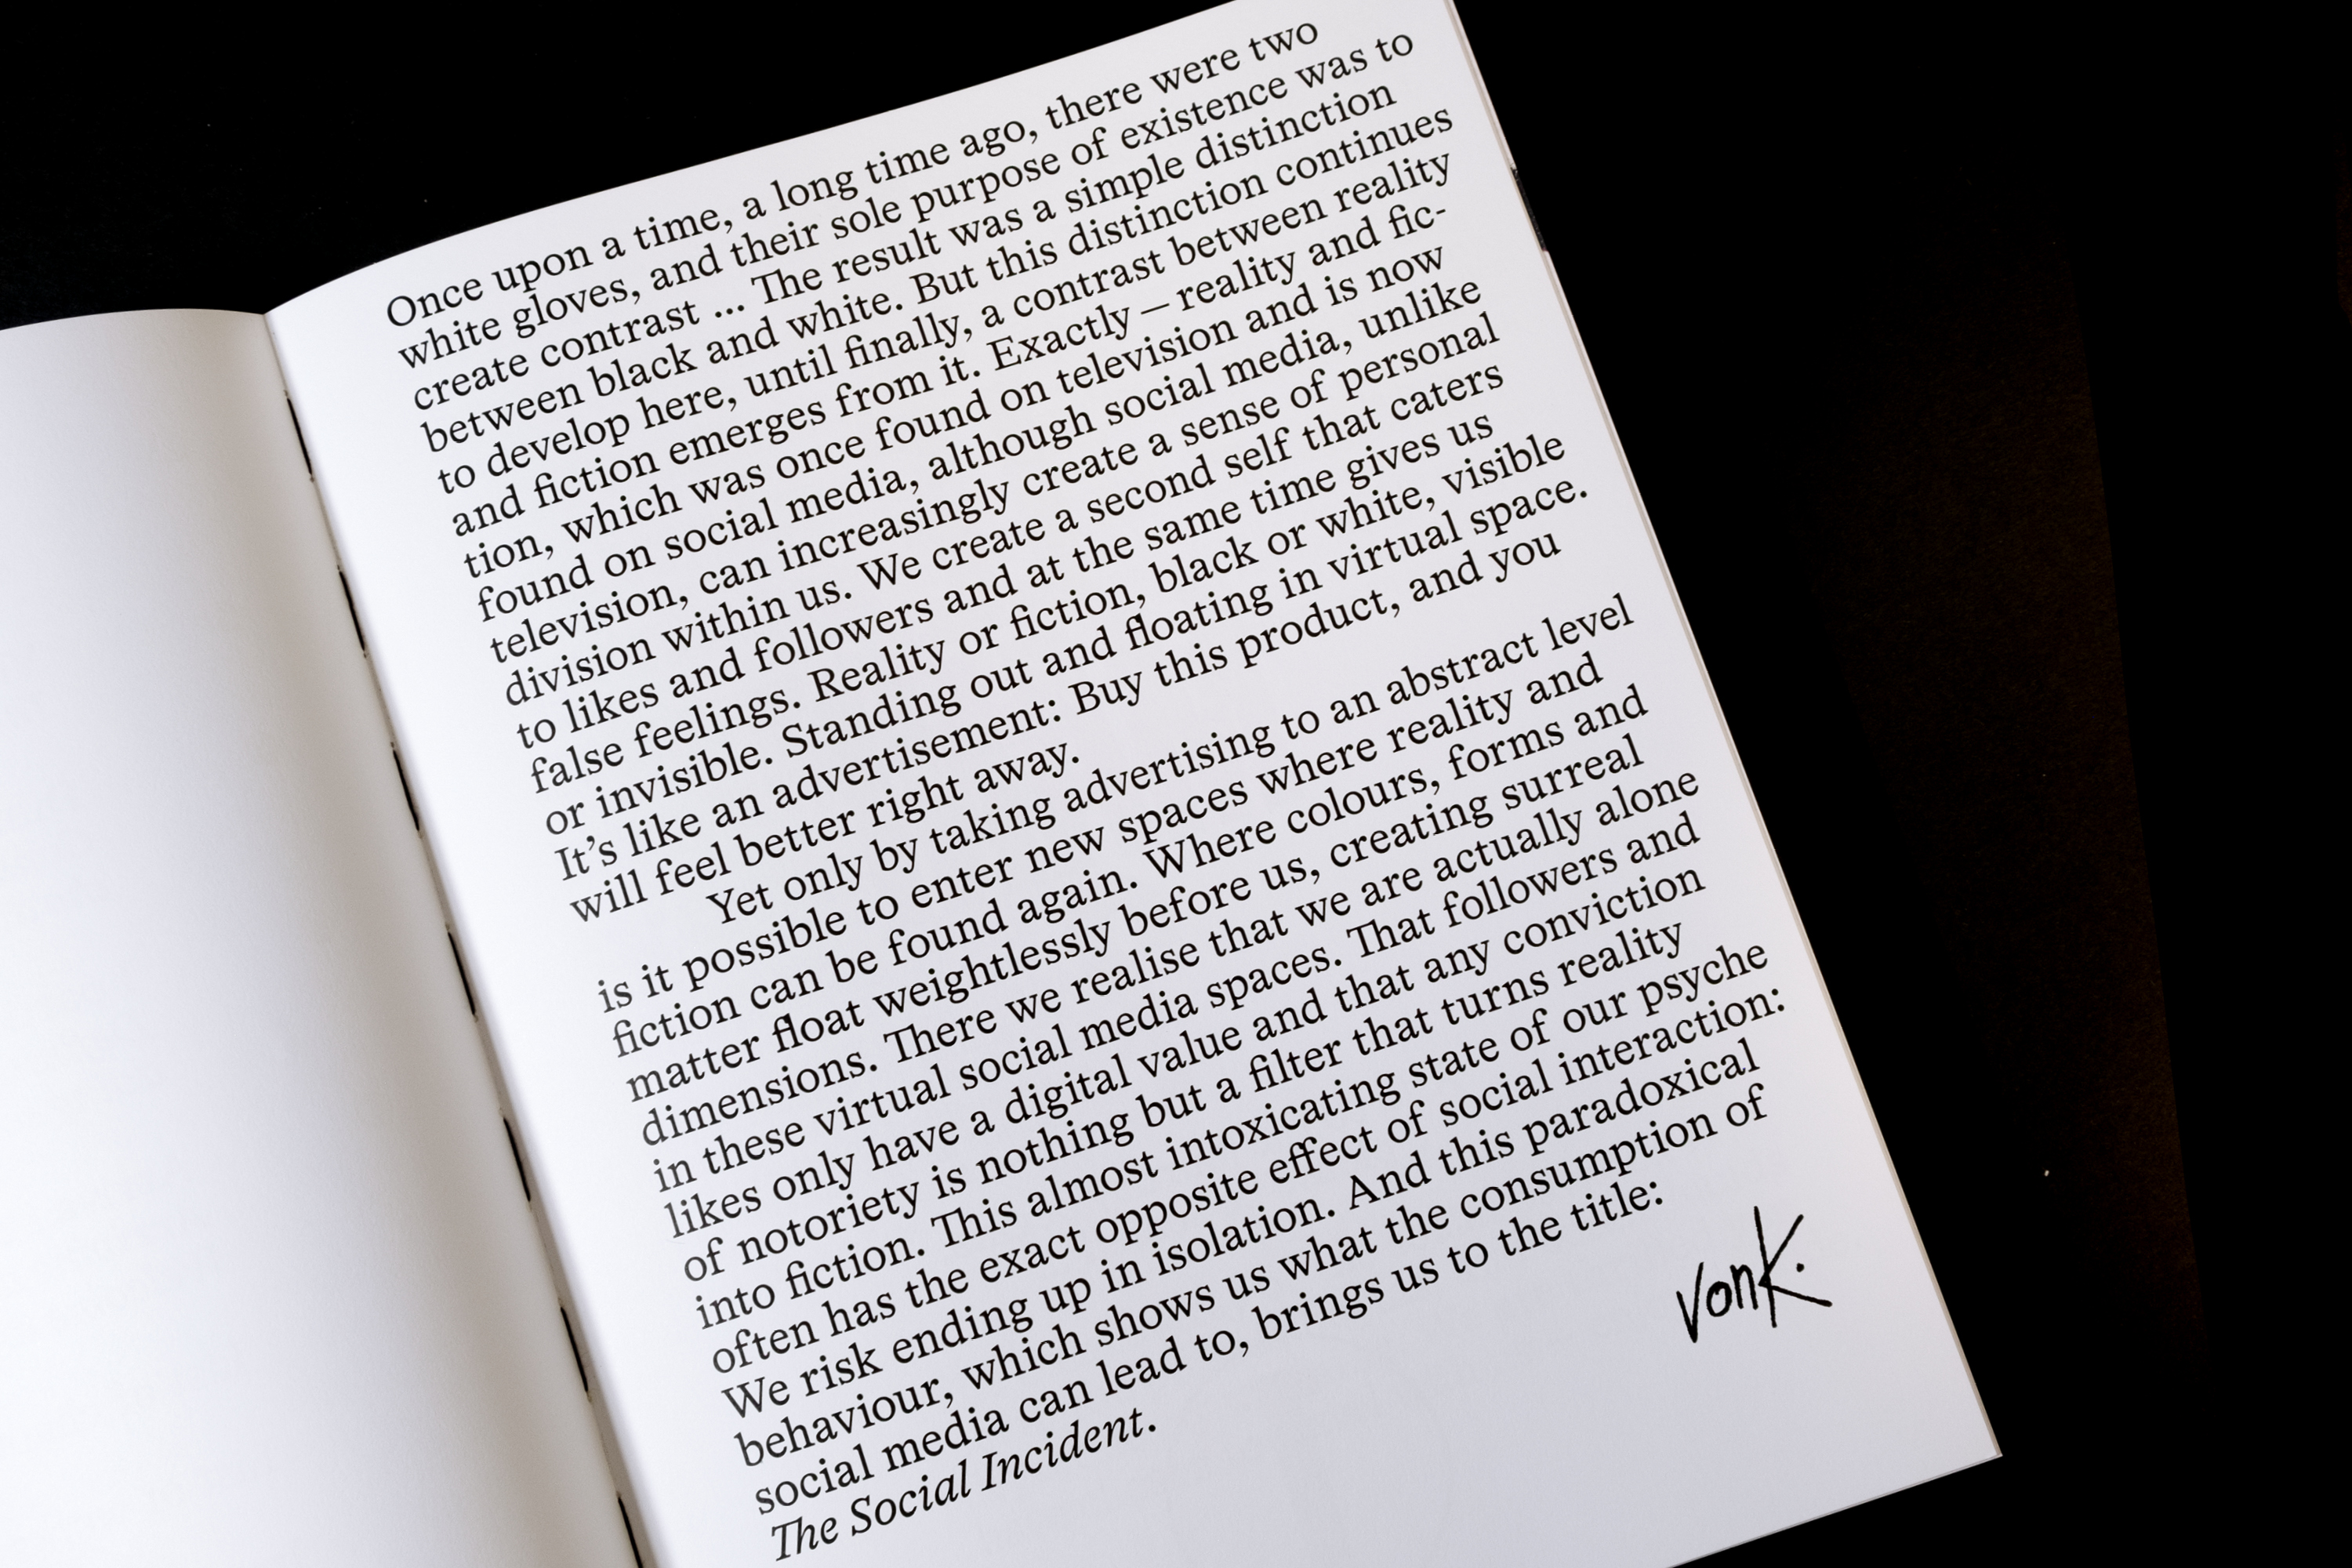 Once upon a time, a long time ago, there were two
white gloves, and their sole purpose of existence was to
create contrast ... The result was a simple distinction
between black and white. But this distinction continues
to develop here, until finally, a contrast between reality
and fiction emerges from it. Exactly – reality and fic-
tion, which was once found on television and is now
found on social media, although social media, unlike
television, can increasingly create a sense of personal
division within us. We create a second self that caters
to likes and followers and at the same time gives us
false feelings. Reality or fiction, black or white, visible
or invisible. Standing out and floating in virtual space.
It’s like an advertisement: Buy this product, and you
will feel better right away.
Yet only by taking advertising to an abstract level
is it possible to enter new spaces where reality and
fiction can be found again. Where colours, forms and
matter float weightlessly before us, creating surreal
dimensions. There we realise that we are actually alone
in these virtual social media spaces. That followers and
likes only have a digital value and that any conviction
of notoriety is nothing but a filter that turns reality
into fiction. This almost intoxicating state of our psyche
often has the exact opposite effect of social interaction:
We risk ending up in isolation. And this paradoxical
behaviour, which shows us what the consumption of
social media can lead to, brings us to the title:
The Social Incident.
vonk.